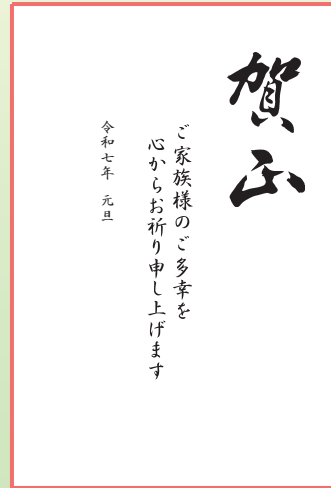 賀正
ご家族様のご多幸を
心からお祈り申し上げます
令和七年　元旦